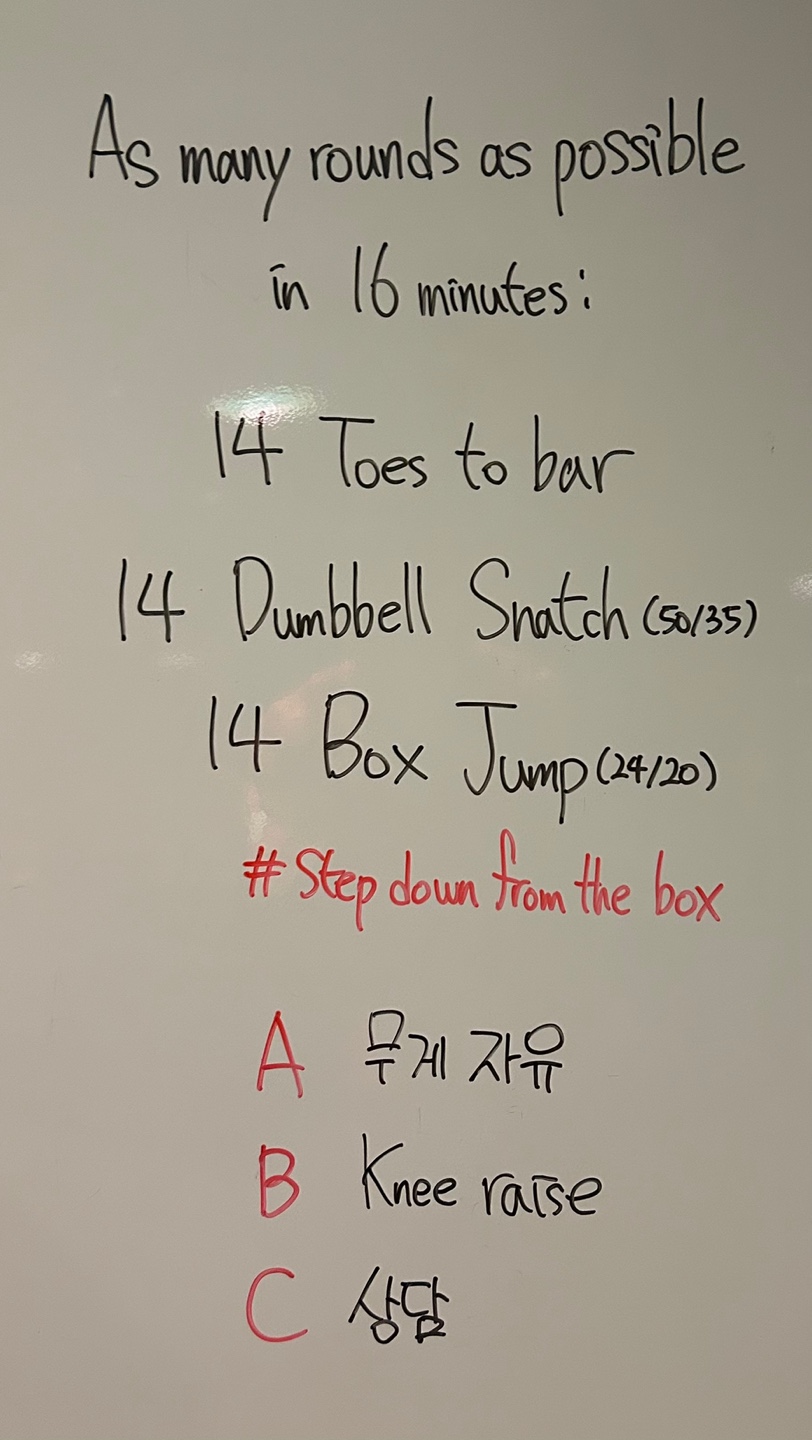 As many rounds as possible
in 16 minutes:
14 Toes to bar
14 Dumbbell Snatch (50/35)
14 Box Jump (24/20)
# Step down from the box
A 무게 자유
B Knee raise
C 상담